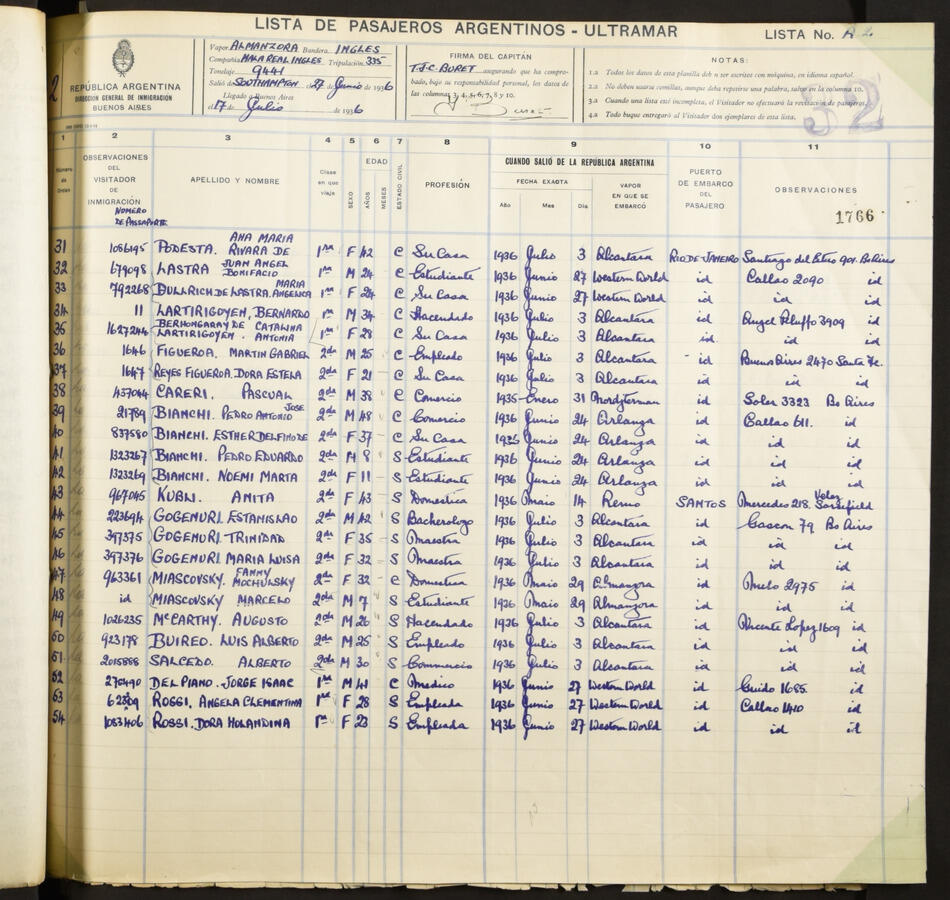 LISTA DE PASAJEROS ARGENTINOS - ULTRAMAR LISTA No. A 2
REPÚBLICA ARGENTINA
DIRECCION GENERAL DE INMIGRACIÓN
BUENOS AIRES
Vapor ALMANZORA Bandera INGLES
Compañía MALA REAL INGLES Tripulación 335
Tonelaje 9441
Salió de SOUTHAMPTON el 27 de Junio de 1936
Llegado a Buenos Aires
el 17 de Julio de 1936
FIRMA DEL CAPITÁN
T.J.C. BURET asegurando que ha comprobado, bajo su responsabilidad personal, los datos de
las columnas 3, 4, 5, 6, 7, 8 y 10.
NOTAS:
1.a Todos los datos de esta planilla deben ser escritos con máquina, en idioma español.
2.a No deben usarse comillas, aunque deba repetirse una palabra, salvo en la columna 10.
3.a Cuando una lista esté incompleta, el Visitador no efectuará la revisación de pasajeros.
4.a Todo buque entregará al Visitador dos ejemplares de esta lista.
32
1 2 3 4 5 6 7 8 9 10 11
Número de Orden
OBSERVACIONES DEL VISITADOR DE INMIGRACIÓN
NUMERO DE PASSAPORTE
APELLIDO Y NOMBRE
Clase en que viaja
SEXO
EDAD
AÑOS
MESES
ESTADO CIVIL
PROFESIÓN
CUANDO SALIÓ DE LA REPÚBLICA ARGENTINA
FECHA EXACTA
Año Mes Día
VAPOR EN QUE SE EMBARCÓ
PUERTO DE EMBARCO DEL PASAJERO
OBSERVACIONES
1766
31 1086195 PODESTA. ANA MARIA RIVARA DE 1ra F 42 C Su Casa 1936 Julio 3 Alcantara RIO DE JANEIRO Santiago del Estro 901. Bs Aires
32 679098 LASTRA JUAN ANGEL BONIFACIO 1ra M 24 C Estudiante 1936 Junio 27 Western World id Callao 2090 id
33 792268 DULLRICH DE LASTRA. MARIA ANGELICA 1ra F 24 C Su Casa 1936 Junio 27 Western World id id id
34 11 LARTIRIGOYEN, BERNARDO 1ra M 34 C Hacendado 1936 Julio 3 Alcantara id Angel Pluffo 3909 id
35 1627244 BERHONGARAY DE LARTIRIGOYEN. CATALINA ANTONIA F 28 C Su Casa 1936 Julio 3 Alcantara id id id
36 1646 FIGUEROA. MARTIN GABRIEL 2da M 25 C Empleado 1936 Julio 3 Alcantara id Buenos Aires 2470 Santa Fe.
37 1647 REYES FIGUEROA. DORA ESTELA 2da F 21 C Su Casa 1936 Julio 3 Alcantara id id id
38 437044 CARERI. PASCUAL 2da M 38 C Comercio 1935 Enero 31 id Soler 3323 Bs Aires
39 21789 BIANCHI. PEDRO ANTONIO JOSE 2da M 48 C Comercio 1936 Junio 24 Arlanza id Callao 611. id
40 837580 BIANCHI. ESTHER DELFINO DE 2da F 37 C Su Casa 1936 Junio 24 Arlanza id id id
41 1323267 BIANCHI. PEDRO EDUARDO 2da M 8 S Estudiante 1936 Junio 24 Arlanza id id id
42 1323269 BIANCHI. NOEMI MARTA 2da F 11 S Estudiante 1936 Junio 24 Arlanza id id id
43 967045 ANITA 2da F 43 S Domestica 1936 Maio 14 SANTOS Mercedes 218. Velez Sarsfield
44 223694 GOGENURI. ESTANISLAO 2da M 42 S 1936 Julio 3 Alcantara id Gascon 79 Bs Aires
45 397375 GOGENURI. TRINIDAD 2da F 35 S Maestra 1936 Julio 3 Alcantara id id id
46 397376 GOGENURI. MARIA LUISA 2da F 32 S Maestra 1936 Julio 3 Alcantara id id id
47 963361 MIASCOVSKY. FANNY MOCHULSKY 2da F 32 C Domestica 1936 Maio 29 Almanzora id 2975 id
48 id MIASCOVSKY MARCELO 2da M 7 S Estudiante 1936 Maio 29 Almanzora id id id
49 1026235 McCARTHY. AUGUSTO 2da M 26 S Hacendado 1936 Julio 3 Alcantara id Vicente Lopez 1609 id
50 923178 BUIREO. LUIS ALBERTO 2da M 25 S Empleado 1936 Julio 3 Alcantara id id id
51 2015888 SALCEDO. ALBERTO 2da M 30 S Commercio 1936 Julio 3 Alcantara id id id
52 270490 DEL PIANO. JORGE ISAAC 1ra M 41 C Medico 1936 Junio 27 Western World id Guido 1685. id
53 ROSSI, ANGELA CLEMENTINA 1ra F 28 S Empleada 1936 Junio 27 Western World id Callao 1410 id
54 1083406 ROSSI. DORA HOLANDINA 1ra F 23 S Empleada 1936 Junio 27 Western World id id id